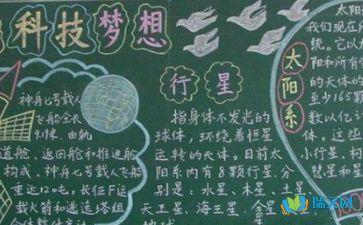 科技梦想
神舟七号载人
飞船全长
9.19米,由轨
道舱、返回舱和推进舱
构成,神舟七号载人飞船
重达12吨,长征F运
载火箭和逃逸塔组
行星
指身体不发光的
球体,环绕着恒星
运转的天体。目前太
阳系内有8颗行星,分
别是:水星、木星、土星
天王星、海王星、金星
地球
太阳系
太阳
我们现在所
统。它以太
阳和所有
的天体
至少165颗
数以亿计
体。
小行星、柯
彗星和星
瑞文网